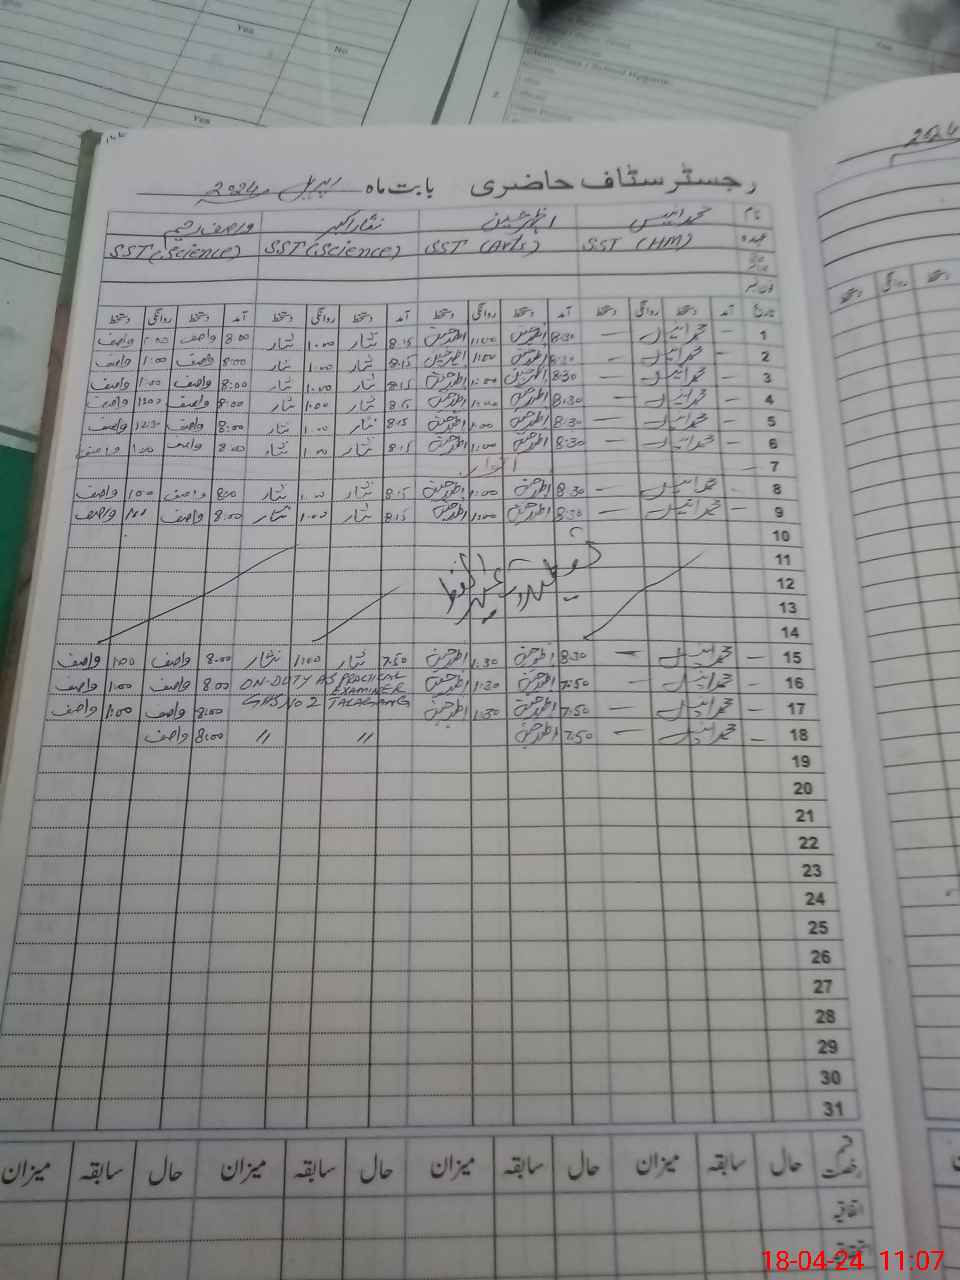 رجسٹر سٹاف حاضری بابت ماہ اپریل 2024
نام محمد انیس اظہر حسین نثار اکبر واصف رحیم
عہدہ SST (HM) SST (Arts) SST (Science) SST (Science)
فون نمبر
تاریخ آمد دستخط روانگی دستخط آمد دستخط روانگی دستخط آمد دستخط روانگی دستخط آمد دستخط روانگی دستخط
1 – محمد انیس – 8:30 اظہر حسین 1:00 اظہر حسین 8:15 نثار 1:00 نثار 8:00 واصف 1:00 واصف
2 – محمد انیس – 8:30 اظہر حسین 1:00 اظہر حسین 8:15 نثار 1:00 نثار 8:00 واصف 1:00 واصف
3 – محمد انیس – 8:30 اظہر حسین 1:00 اظہر حسین 8:15 نثار 1:00 نثار 8:00 واصف 1:00 واصف
4 – محمد انیس – 8:30 اظہر حسین 1:00 اظہر حسین 8:15 نثار 1:00 نثار 8:00 واصف واصف
5 – محمد انیس – 8:30 اظہر حسین 1:00 اظہر حسین 8:15 نثار 1:00 نثار 8:00 واصف 12:30 واصف
6 – محمد انیس – 8:30 اظہر حسین 1:00 اظہر حسین 8:15 نثار 1:00 نثار 8:00 واصف 1:00 واصف
7 – اتوار
8 – محمد انیس – 8:30 اظہر حسین 1:00 اظہر حسین 8:15 نثار 1:00 نثار 8:00 واصف 1:00 واصف
9 – محمد انیس – 8:30 اظہر حسین 1:00 اظہر حسین 8:15 نثار 1:00 نثار 8:00 واصف 1:00 واصف
10
11
12 تعطیلات عید الفطر
13
14
15 – محمد انیس – 8:30 اظہر حسین 1:30 اظہر حسین 7:50 نثار 1:00 نثار 8:00 واصف 1:00 واصف
16 – محمد انیس – 7:50 اظہر حسین 1:30 اظہر حسین ON-DUTY AS PRACTICAL EXAMINER 8:00 واصف 1:00 واصف
17 – محمد انیس – 7:50 اظہر حسین 1:30 اظہر حسین GHS No 2 TALAGANG 8:00 واصف 1:00 واصف
18 – محمد انیس – 7:50 اظہر حسین 〃 〃 8:00 واصف
19
20
21
22
23
24
25
26
27
28
29
30
31
قسم رخصت حال سابقہ میزان حال سابقہ میزان حال سابقہ میزان حال سابقہ میزان
اتفاقیہ
18-04-24 11:07
2024
دستخط روانگی دستخط
Yes
No
Yes
Yes
2.